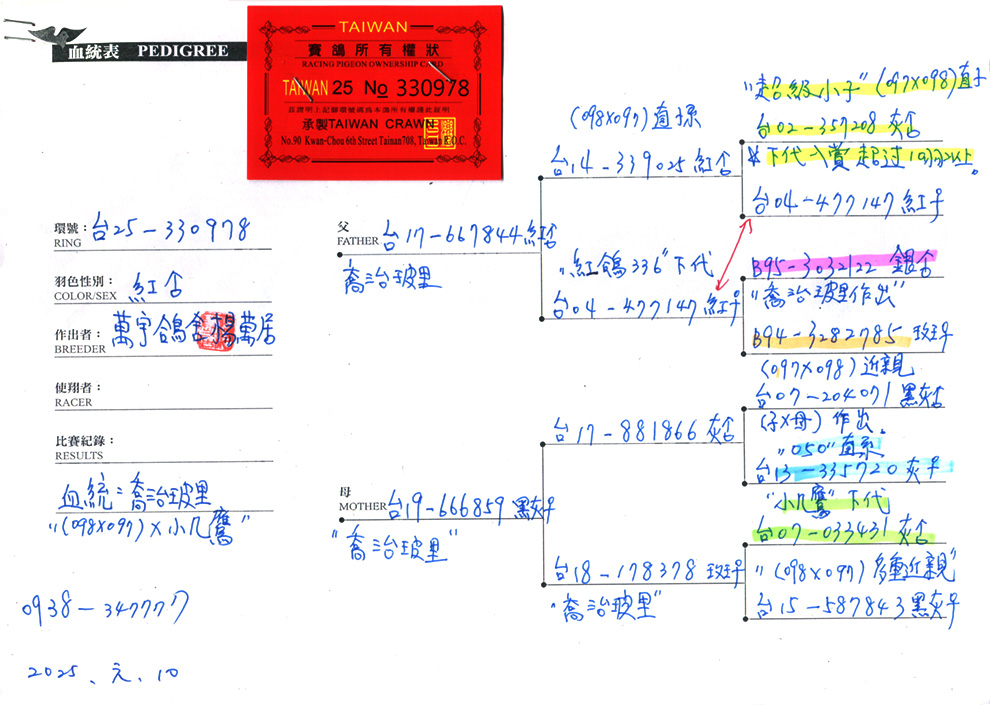 血統表 PEDIGREE
TAIWAN
賽鴿所有權狀
RACING PIGEON OWNERSHIP CARD
TAIWAN 25 No 330978
茲證明上記腳環號碼為本鴿所有權謹此証明
承製TAIWAN CRAWN
No.90 Kwan-Chou 6th Street Tainan708, Taiwan R.O.C.
環號:
RING
台25-330978
羽色性別:
COLOR/SEX
紅
作出者:
BREEDER
萬宇鴿舍楊萬居
使翔者:
RACER
比賽紀錄:
RESULTS
血統:喬治玻里
"(098x097)x小几鷹"
0938-347777
2025、元、10
父
FATHER
台17-667844紅
喬治玻里
母
MOTHER
台19-666859黑灰♀
"喬治玻里"
(098x097)直孫
台14-339025紅
"紅鴿336"下代
台04-477147紅♀
台17-881866灰
台18-178378玫♀
"喬治玻里"
"超級小子"(097x098)直子
台02-357208灰
*下代入賞超过10羽以上。
台04-477147紅♀
B95-3032122銀
"喬治玻里作出"
B94-3282785玫♀
(097x098)近親
台07-204071黑灰
(子x母)作出。
"050"直系
台13-335720灰♀
"小几鷹"下代
台07-033431灰
"(098x097)多重近親"
台15-587843黑灰♀